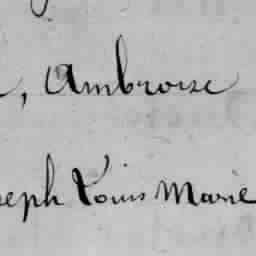 , Ambroise
seph Louis Marie